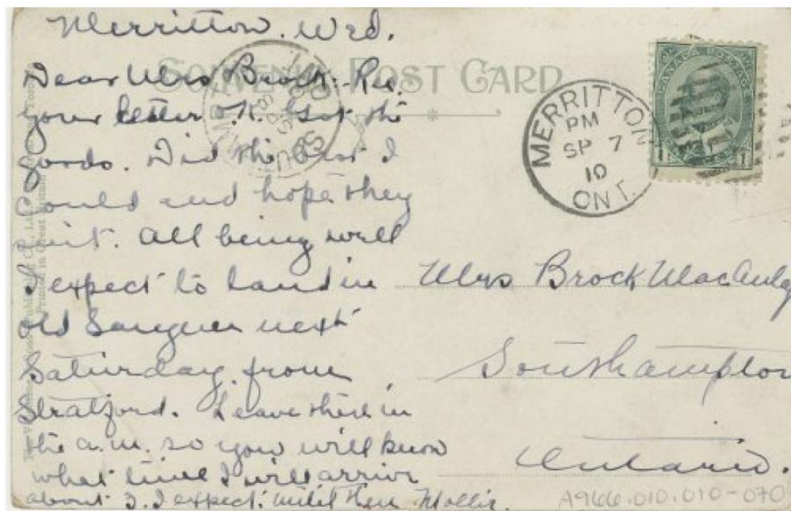 Merritton. Wed.
SOUVENIR POST CARD
Dear Mrs Brock. Rec.
your letter &. Got the
goods. Did the best I
could and hope they
suit. All being well
I expect to land in
old Saugeen next
Saturday from
Stratford. Leave there in
the a.m. so you will know
what time I will arrive
about 3. I expect. until then Mollie.
MERRITTON
PM
SP 7
10
ONT.
CANADA POSTAGE
1
Mrs Brock MacAulay
Southampton
Ontario.
A966.010.010-070